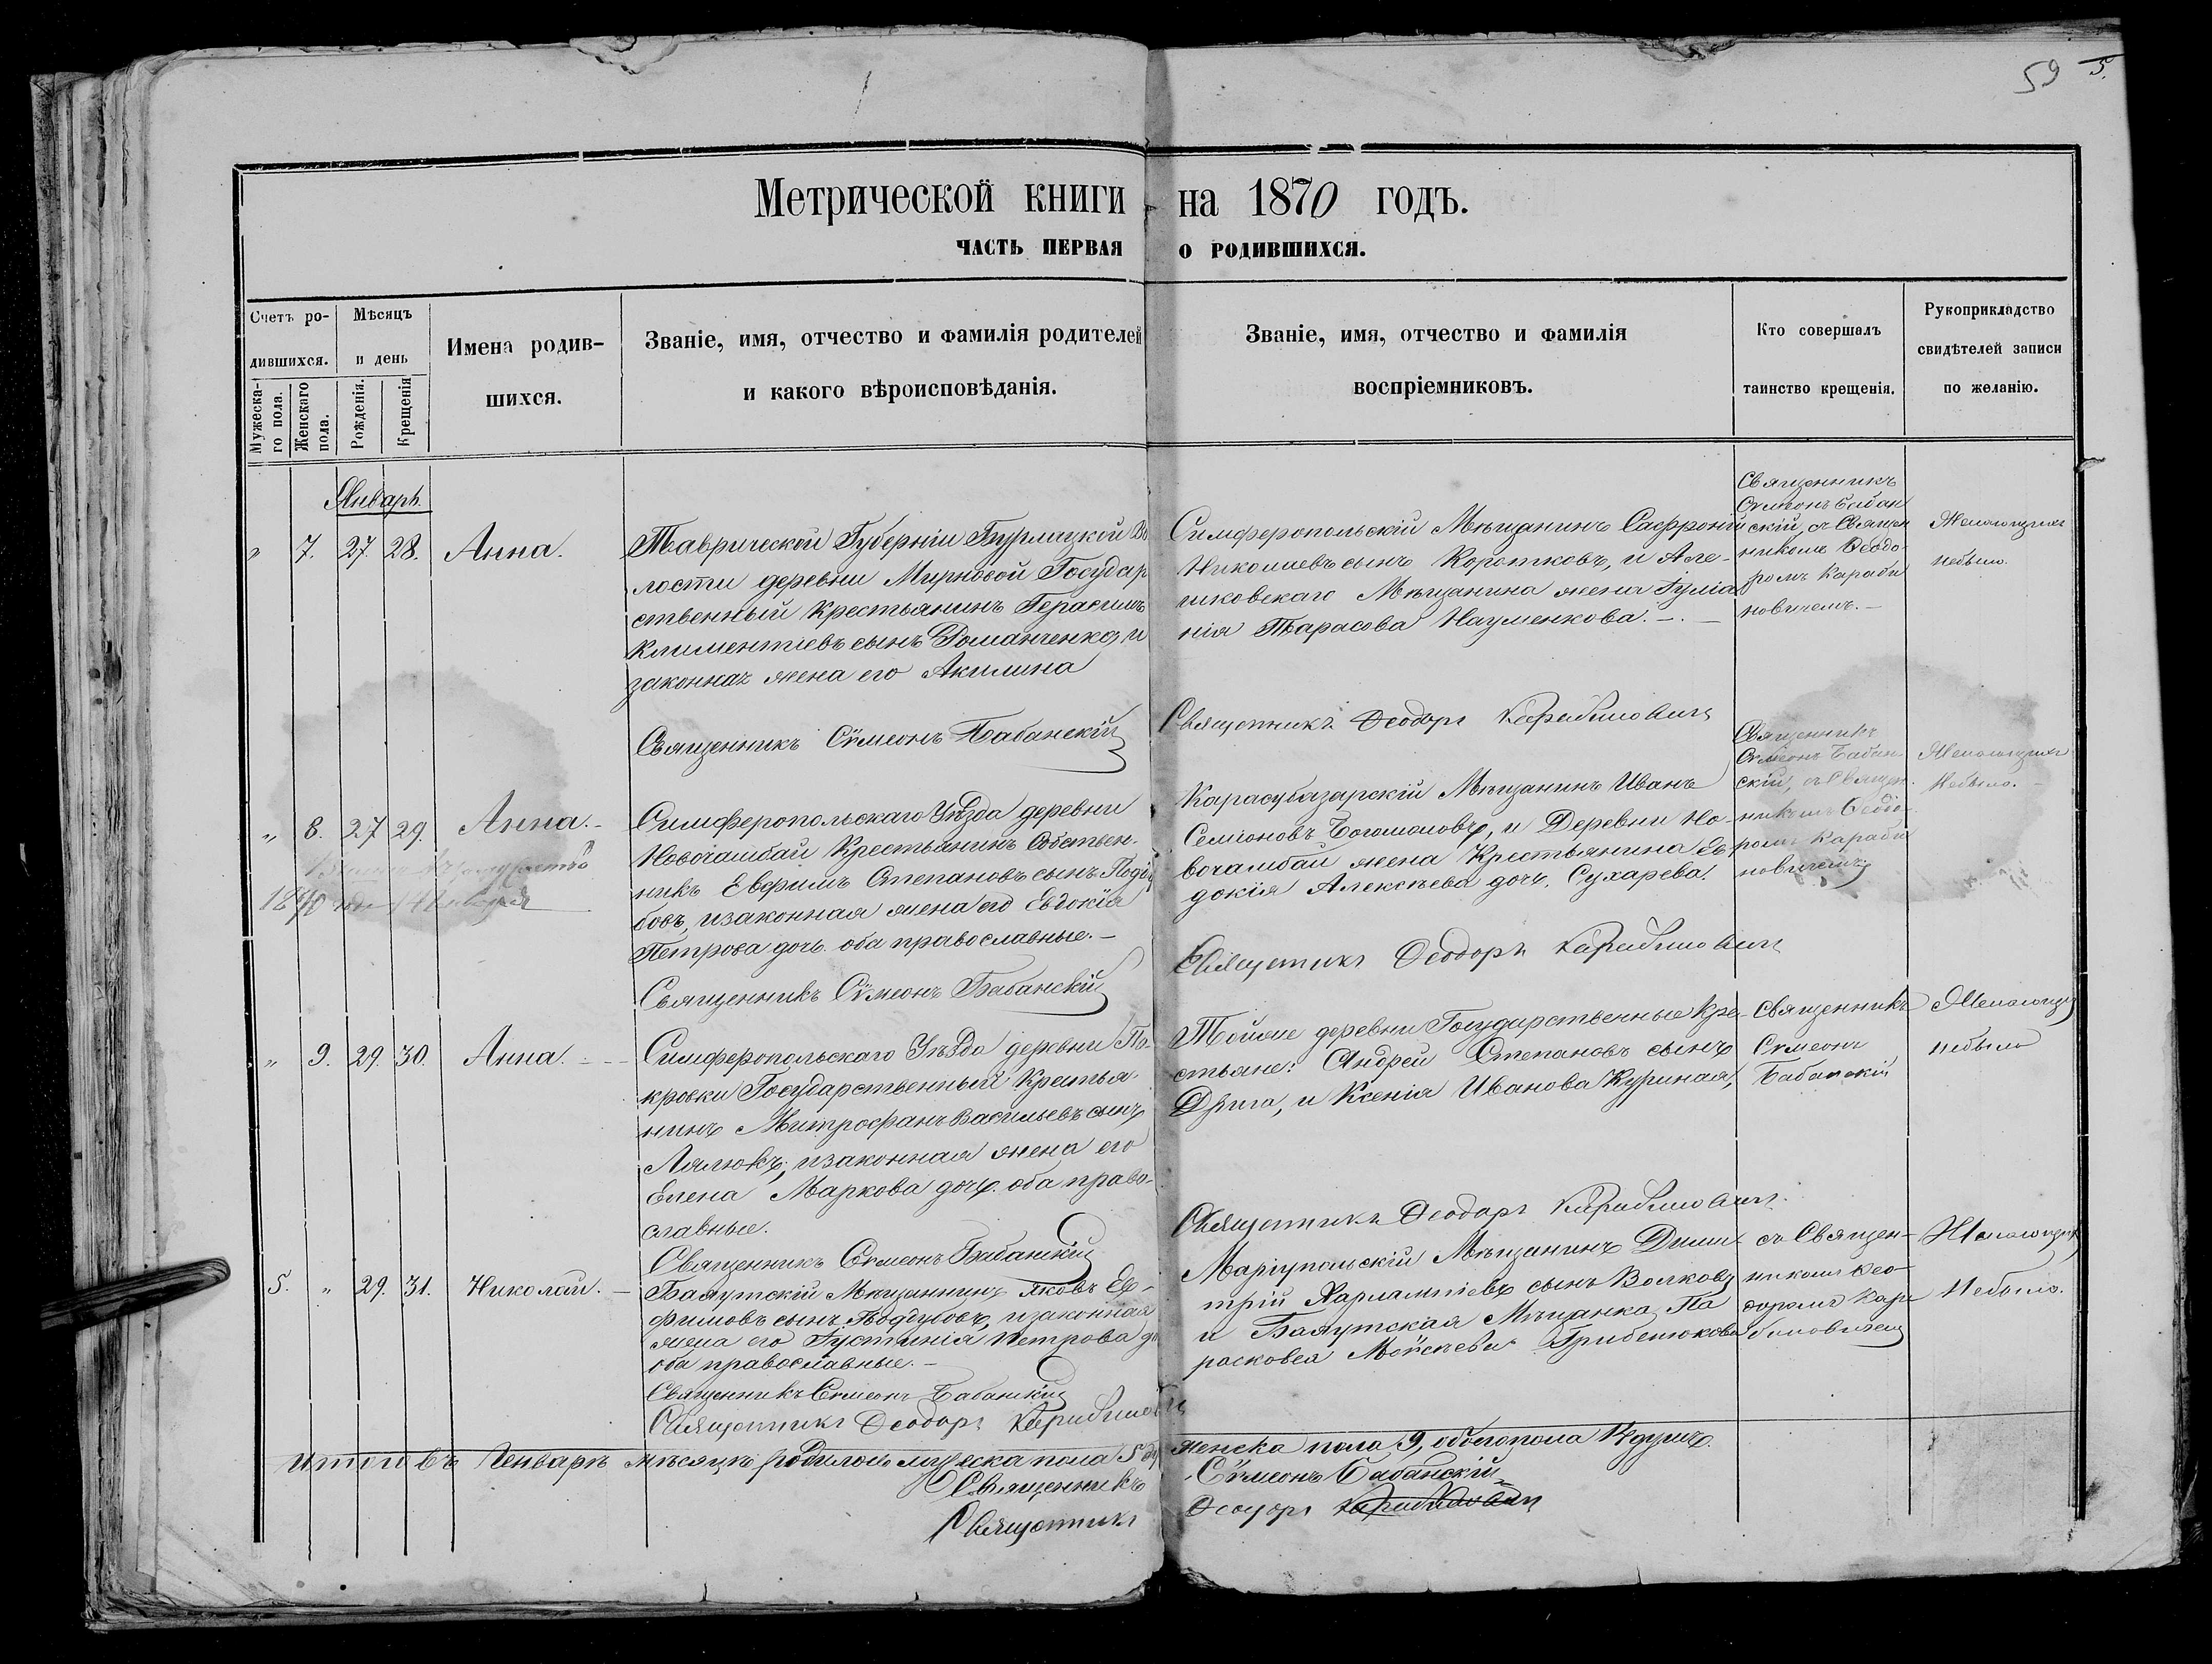 59 5.
Метрической книги на 1870 годъ.
ЧАСТЬ ПЕРВАЯ О РОДИВШИХСЯ.
Счетъ ро-
дившихся.
Мужеска-
го пола.
Женскаго
пола.
Мѣсяцъ
и день
Рожденія.
Крещенія
Имена родив-
шихся.
Званіе, имя, отчество и фамилія родителей
и какого вѣроисповѣданія.
Званіе, имя, отчество и фамилія
воспріемниковъ.
Кто совершалъ
таинство крещенія.
Рукоприкладство
свидѣтелей записи
по желанію.
Январь
" 7. 27. 28. Анна.
Таврической Губерніи Бурлуцкой Во
лости деревни Мирновой Государ
ственный Крестьянинъ Герасимъ
Климентіевъ сынъ Романченко, и
законная жена его Акилина
Священникъ Сѵмеонъ Бабанскій
Симферопольскій Мѣщанинъ Сафроній
Николаевъ сынъ Коротковъ, и Але-
шковскаго Мѣщанина жена Іуліа
нія Тарасова Науменкова.
Священникъ Ѳеодоръ Карабиновичъ
Священникъ
Сѵмеонъ Бабан
скій, съ Священ
никомъ Ѳеодо-
ромъ Караби
новичемъ.
Желающихъ
небыло.
" 8. 27 29. Анна.
1890 года
Симферопольскаго Уѣзда деревни
Новочамбай Крестьянинъ Собствен-
никъ Евфимъ Степановъ сынъ Подду
бовъ, изаконная жена его Евдокія
Петрова дочь. оба православные.
Священникъ Сѵмеонъ Бабанскій
Карасубазарскій Мѣщанинъ Иванъ
Семіоновъ Богомоловъ, и Деревни Но-
вочамбай жена Крестьянина Ев
докія Алексѣева дочь. Сухарева.
Священникъ Ѳеодоръ Карабиновичъ
Священникъ
Сѵмеонъ Бабан
скій, съ Священ.
никомъ Ѳеодо-
ромъ Караби
новичемъ
Желающихъ
Небыло.
" 9. 29. 30. Анна.
Симферопольскаго Уѣзда деревни По-
кровки Государственный Крестья-
нинъ Митрофанъ Васильевъ сынъ
Лялюкъ, изаконная жена его
Елена Маркова дочь. оба право-
славные.
Священникъ Сѵмеонъ Бабанскій
Тойже деревни Государственные Кре-
стьяне: Андрей Степановъ сынъ
Дрига, и Ксенія Иванова Куриная,
Священникъ Ѳеодоръ Карабиновичъ.
Священникъ
Сѵмеонъ
Бабанскій
Желающихъ
небыло
5. " 29. 31. Николай.
Бахмутскій Мѣщанинъ Яковъ Ев-
фимовъ сынъ Поддубовъ, изаконная
жена его Іустинія Петрова до
оба православные.
Священникъ Сѵмеонъ Бабанскій
Священникъ Ѳеодоръ Карабиновичъ
Маріупольскій Мѣщанинъ Дими-
трій Харлампіевъ сынъ Волковъ
и Бахмутская Мѣщанка Па
расковея Моисѣева Грибенюкова
съ Священ-
никомъ Ѳео-
доромъ Кара
биновичемъ
Желающихъ
Небыло.
Итого въ Генварѣ мѣсяцѣ родилось мужеска пола 5 женска пола 9, обоегопола 14 душъ.
Священникъ Сѵмеонъ Бабанскій
Священникъ Ѳеодоръ Карабиновичъ